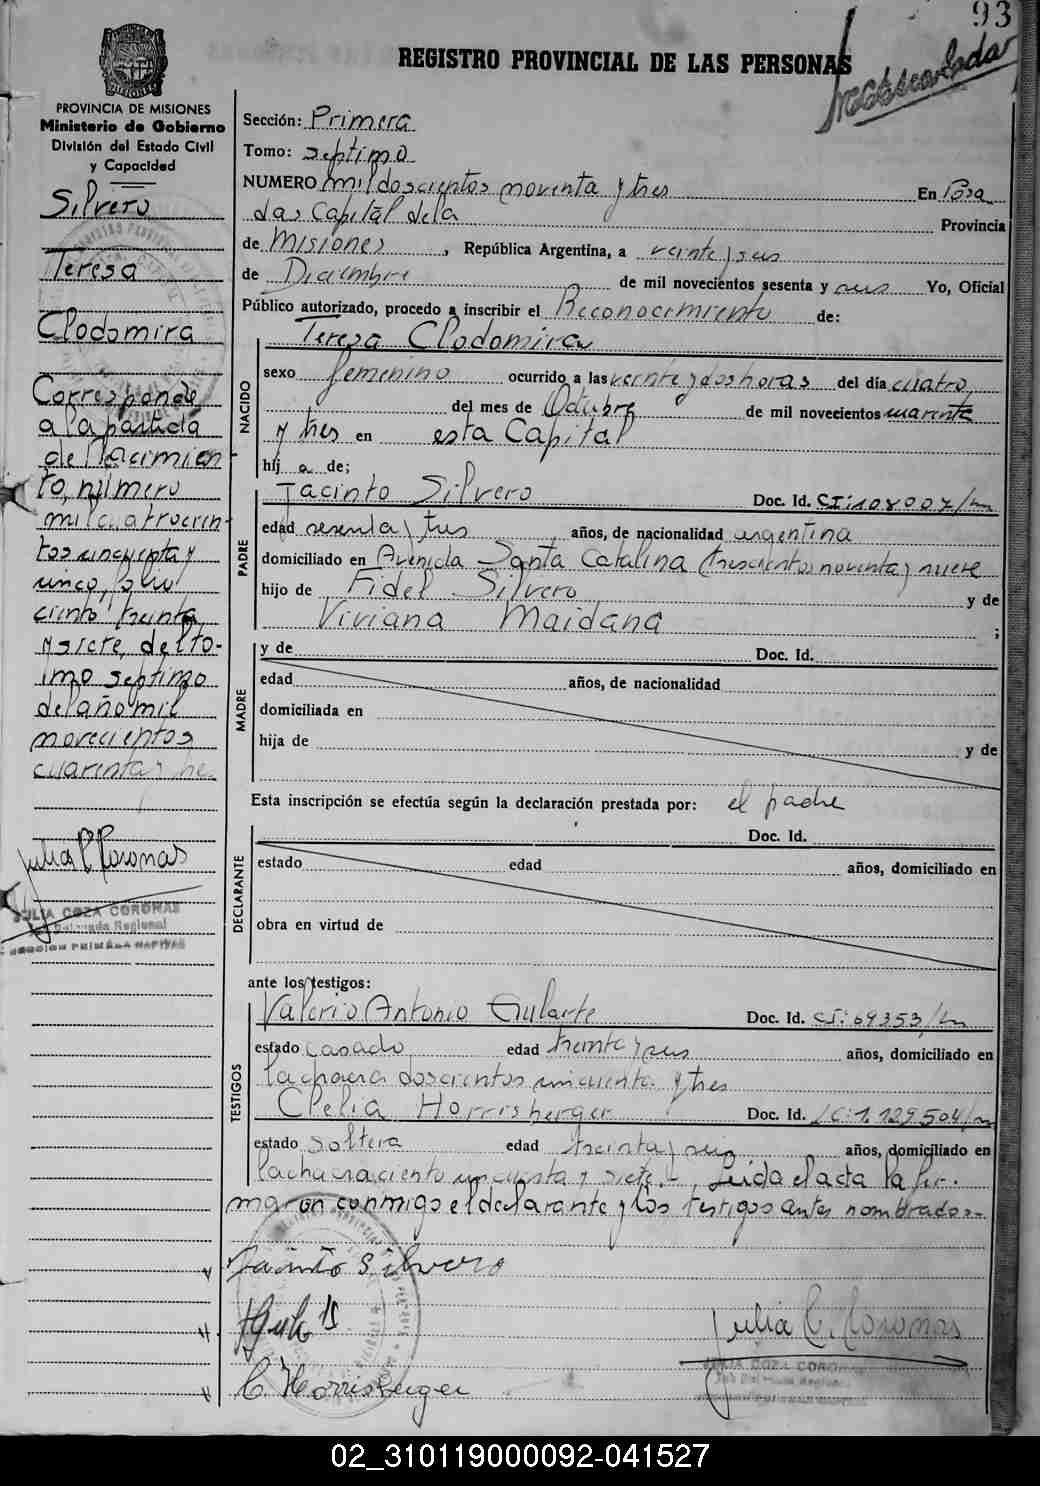 93
REGISTRO PROVINCIAL DE LAS PERSONAS
PROVINCIA DE MISIONES
Ministerio de Gobierno
División del Estado Civil
y Capacidad
Silvero
Teresa
Clodomira
Corresponde
a la partida
de Nacimien
to, número
mil cuatrocien
tos cincuenta y
cinco, folio
ciento treinta
y siete, del to-
mo septimo
del año mil
novecientos
cuarenta y tres
Julia C. Coronas
JULIA COZA CORONAS
Sub Delegada Regional
Sección: Primera
Tomo: septimo
NUMERO mil doscientos noventa y tres En Posa
das Capital de la Provincia
de Misiones, República Argentina, a veinte y seis
de Diciembre de mil novecientos sesenta y seis Yo, Oficial
Público autorizado, procedo a inscribir el Reconocimiento de:
Teresa Clodomira
NACIDO
sexo femenino ocurrido a las veinte y dos horas del día cuatro
del mes de Octubre de mil novecientos cuarenta
y tres en esta Capital
hij a de;
PADRE
Jacinto Silvero Doc. Id. CI: 108007/
edad sesenta y tres años, de nacionalidad argentina
domiciliado en Avenida Santa Catalina trescientos noventa y nueve
hijo de Fidel Silvero y de
Viviana Maidana ;
MADRE
y de Doc. Id.
edad años, de nacionalidad
domiciliada en
hija de y de
Esta inscripción se efectúa según la declaración prestada por: el padre
DECLARANTE
Doc. Id.
estado edad años, domiciliado en
obra en virtud de
ante los testigos:
TESTIGOS
Valerio Antonio Gularte Doc. Id. CI: 69353/
estado casado edad treinta y seis años, domiciliado en
la chacra doscientos cincuenta y tres
Clelia Horrisberger Doc. Id. LC: 1.129.504/
estado soltera edad treinta y seis años, domiciliado en
la chacra ciento cincuenta y siete.- Leida el acta la fir-
maron conmigo el declarante y los testigos antes nombrados.-
Jacinto Silvero
Julia C. Coronas
JULIA COZA CORONAS
Sub Delegada Regional
C. Horrisberger
02_310119000092-041527